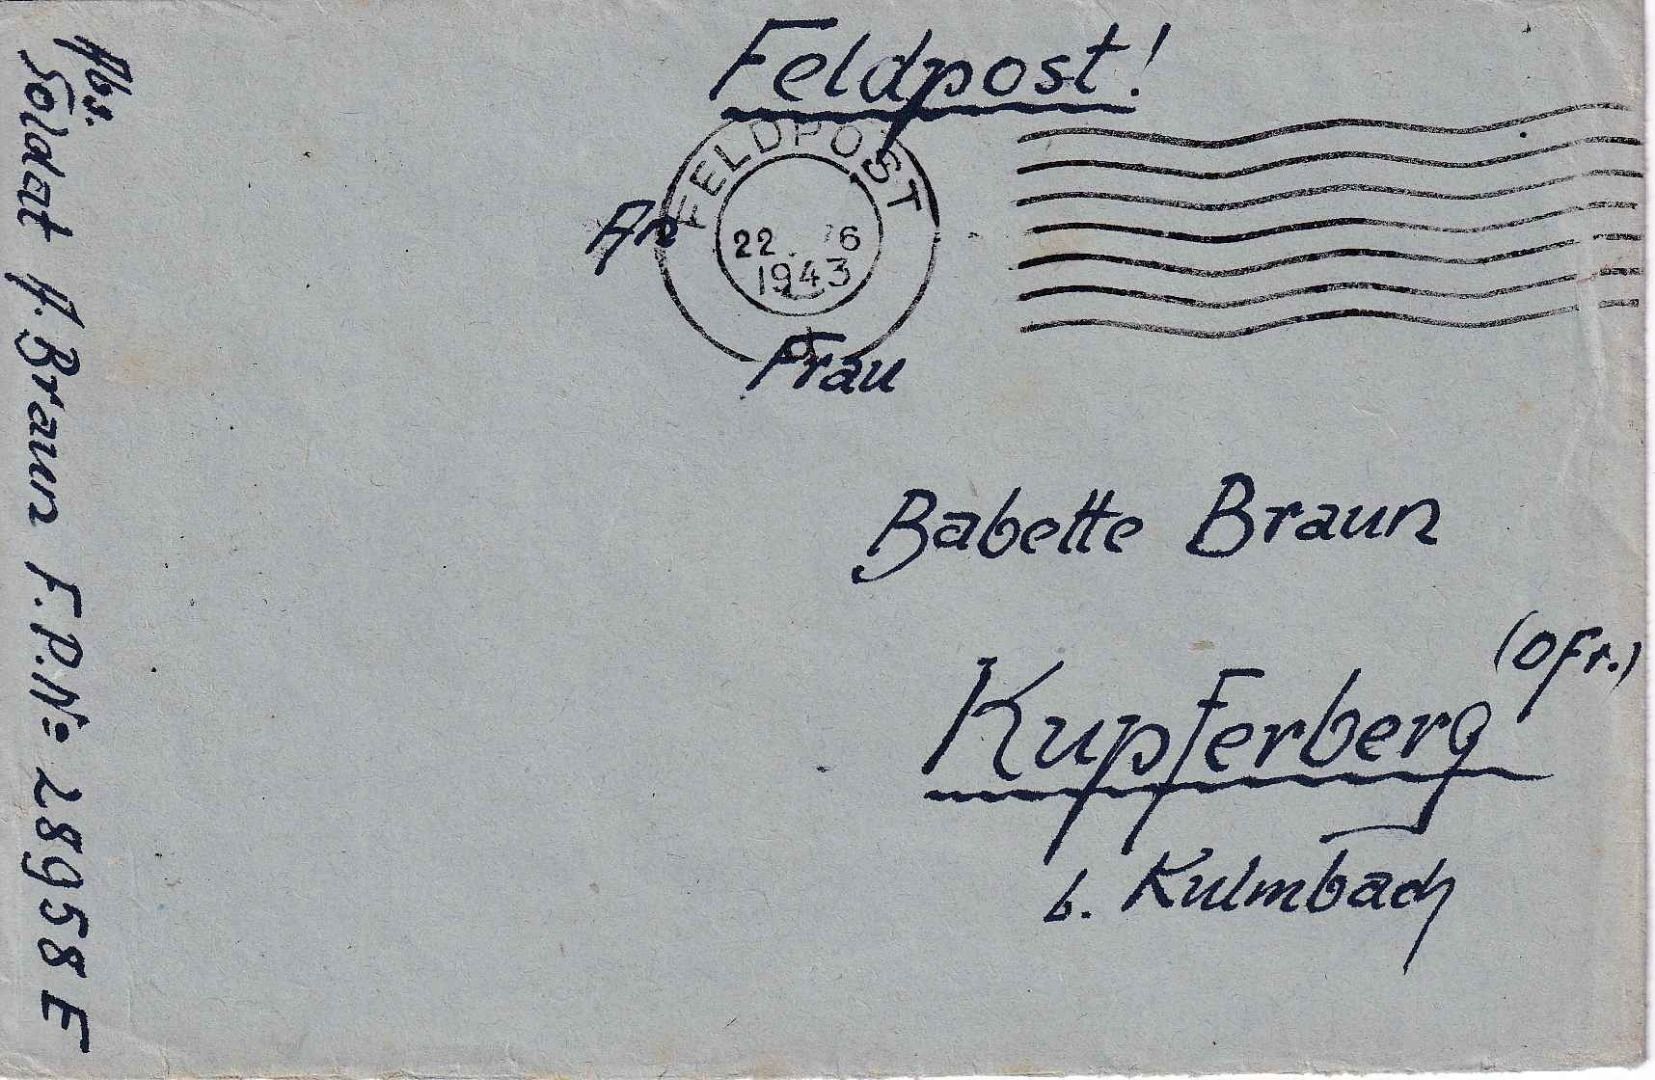 Feldpost!
FELDPOST
22. 6
1943
An
Frau
Babette Braun
Kupferberg (Ofr.)
b. Kulmbach
Abs.
Soldat H. Braun F.P.No 28958 E